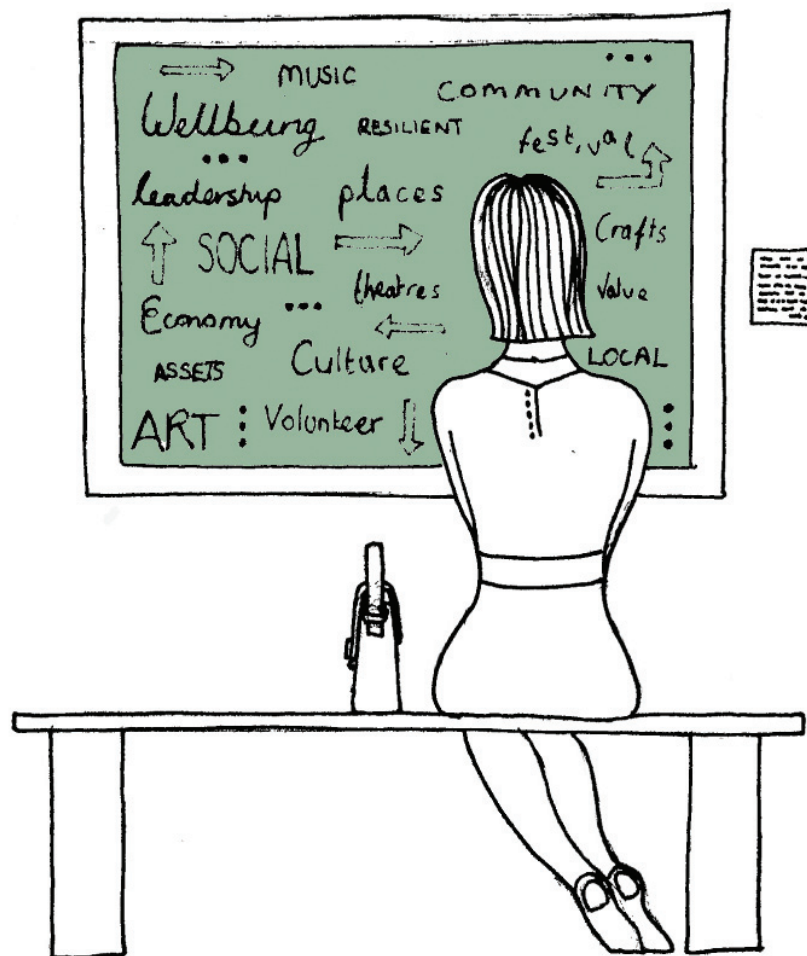 MUSIC
COMMUNITY
Wellbeing RESILIENT
festival
leadership places
Crafts
SOCIAL
theatres Value
Economy
Culture LOCAL
ASSETS
ART Volunteer